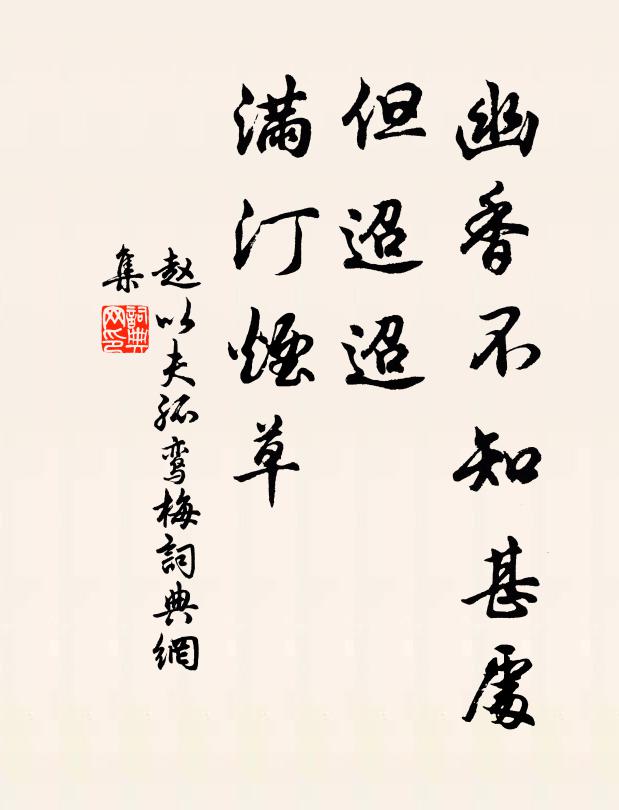 幽香不知甚處
但迢迢
滿汀煙草
赵以夫孤鸾梅詞典網
集
詞典
网印